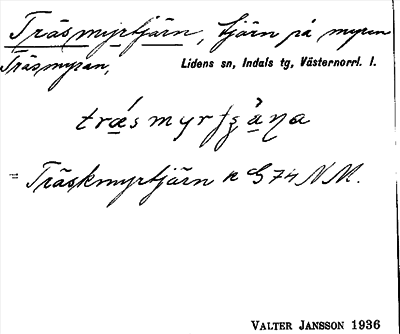 Träsmyrtjärn, tjärn på myren
Träsmyran, Lidens sn, Indals tg, Västernorrl. l.
= Träskmyrtjärn k G 74 NM.
VALTER JANSSON 1936